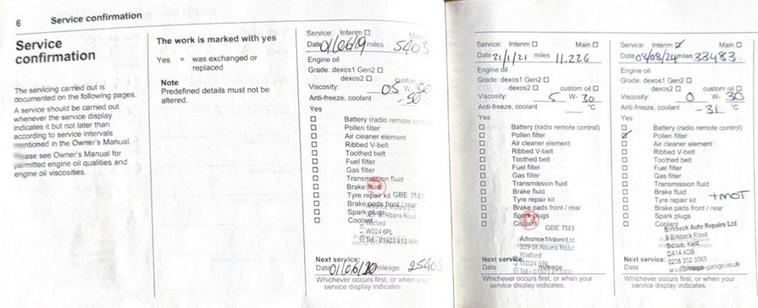 6 Service confirmation
Service
confirmation
The servicing carried out is
documented on the following pages.
A service should be carried out
whenever the service display
indicates it but not later than
according to service intervals
mentioned in the Owner's Manual.
Please see Owner's Manual for
permitted engine oil qualities and
engine oil viscosities.
The work is marked with yes
Yes = was exchanged or
replaced
Note
Predefined details must not be
altered.
Service: Interim ☐ Main
Date 01/06/19 miles 5403
Engine oil
Grade: dexos1 Gen2 ☐
dexos2 ☐ custom
Viscosity: 05 W-30
Anti-freeze, coolant -30
Yes
☐ Battery (radio remote
☐ Pollen filter
☐ Air cleaner element
☐ Ribbed V-belt
☐ Toothed belt
☐ Fuel filter
☐ Gas filter
☐ Transmission fluid
☐ Brake fluid
☐ Tyre repair kit GBE 7M3
☐ Brake pads front / rear
☐ Spark plugs
☐ Coolant
St Albans Road
Watford
WD24 6PL
Tel: 01923 813
Next service:
Date 01/06/20 mileage 25403
Whichever occurs first, or when your
service display indicates.
Service: Interim ☐ Main ☐
Date 21/1/21 miles 11,226
Engine oil
Grade: dexos1 Gen2 ☐
dexos2 ☐ custom oil ☐
Viscosity: 5 W- 30
Anti-freeze, coolant °C
Yes
☐ Battery (radio remote control)
☐ Pollen filter
☐ Air cleaner element
☐ Ribbed V-belt
☐ Toothed belt
☐ Fuel filter
☐ Gas filter
☐ Transmission fluid
☐ Brake fluid
☐ Tyre repair kit
☐ Brake pads front / rear
☐ Spark plugs
☐ Coolant
GBE 7M3
Advance Motors Ltd
St Albans Road
Watford
WD24 6PL
Next service:
Date mileage
Whichever occurs first, or when your
service display indicates.
Service: Interim ☑ Main ☐
Date 08/08/24 miles 33483
Engine oil
Grade: dexos1 Gen2 ☐
dexos2 ☐ custom oil ☐
Viscosity: 0 W- 30
Anti-freeze, coolant -31 °C
Yes
☐ Battery (radio remote control)
☑ Pollen filter
☐ Air cleaner element
☐ Ribbed V-belt
☐ Toothed belt
☐ Fuel filter
☐ Gas filter
☐ Transmission fluid
☐ Brake fluid
☐ Tyre repair kit +MOT
☐ Brake pads front / rear
☐ Spark plugs
☐ Coolant
Birkbeck Auto Repairs Ltd
Birkbeck Road
Sidcup, Kent
DA14 4DB
0208 302 3063
Next service:
Date
Whichever occurs first, or when your
service display indicates.